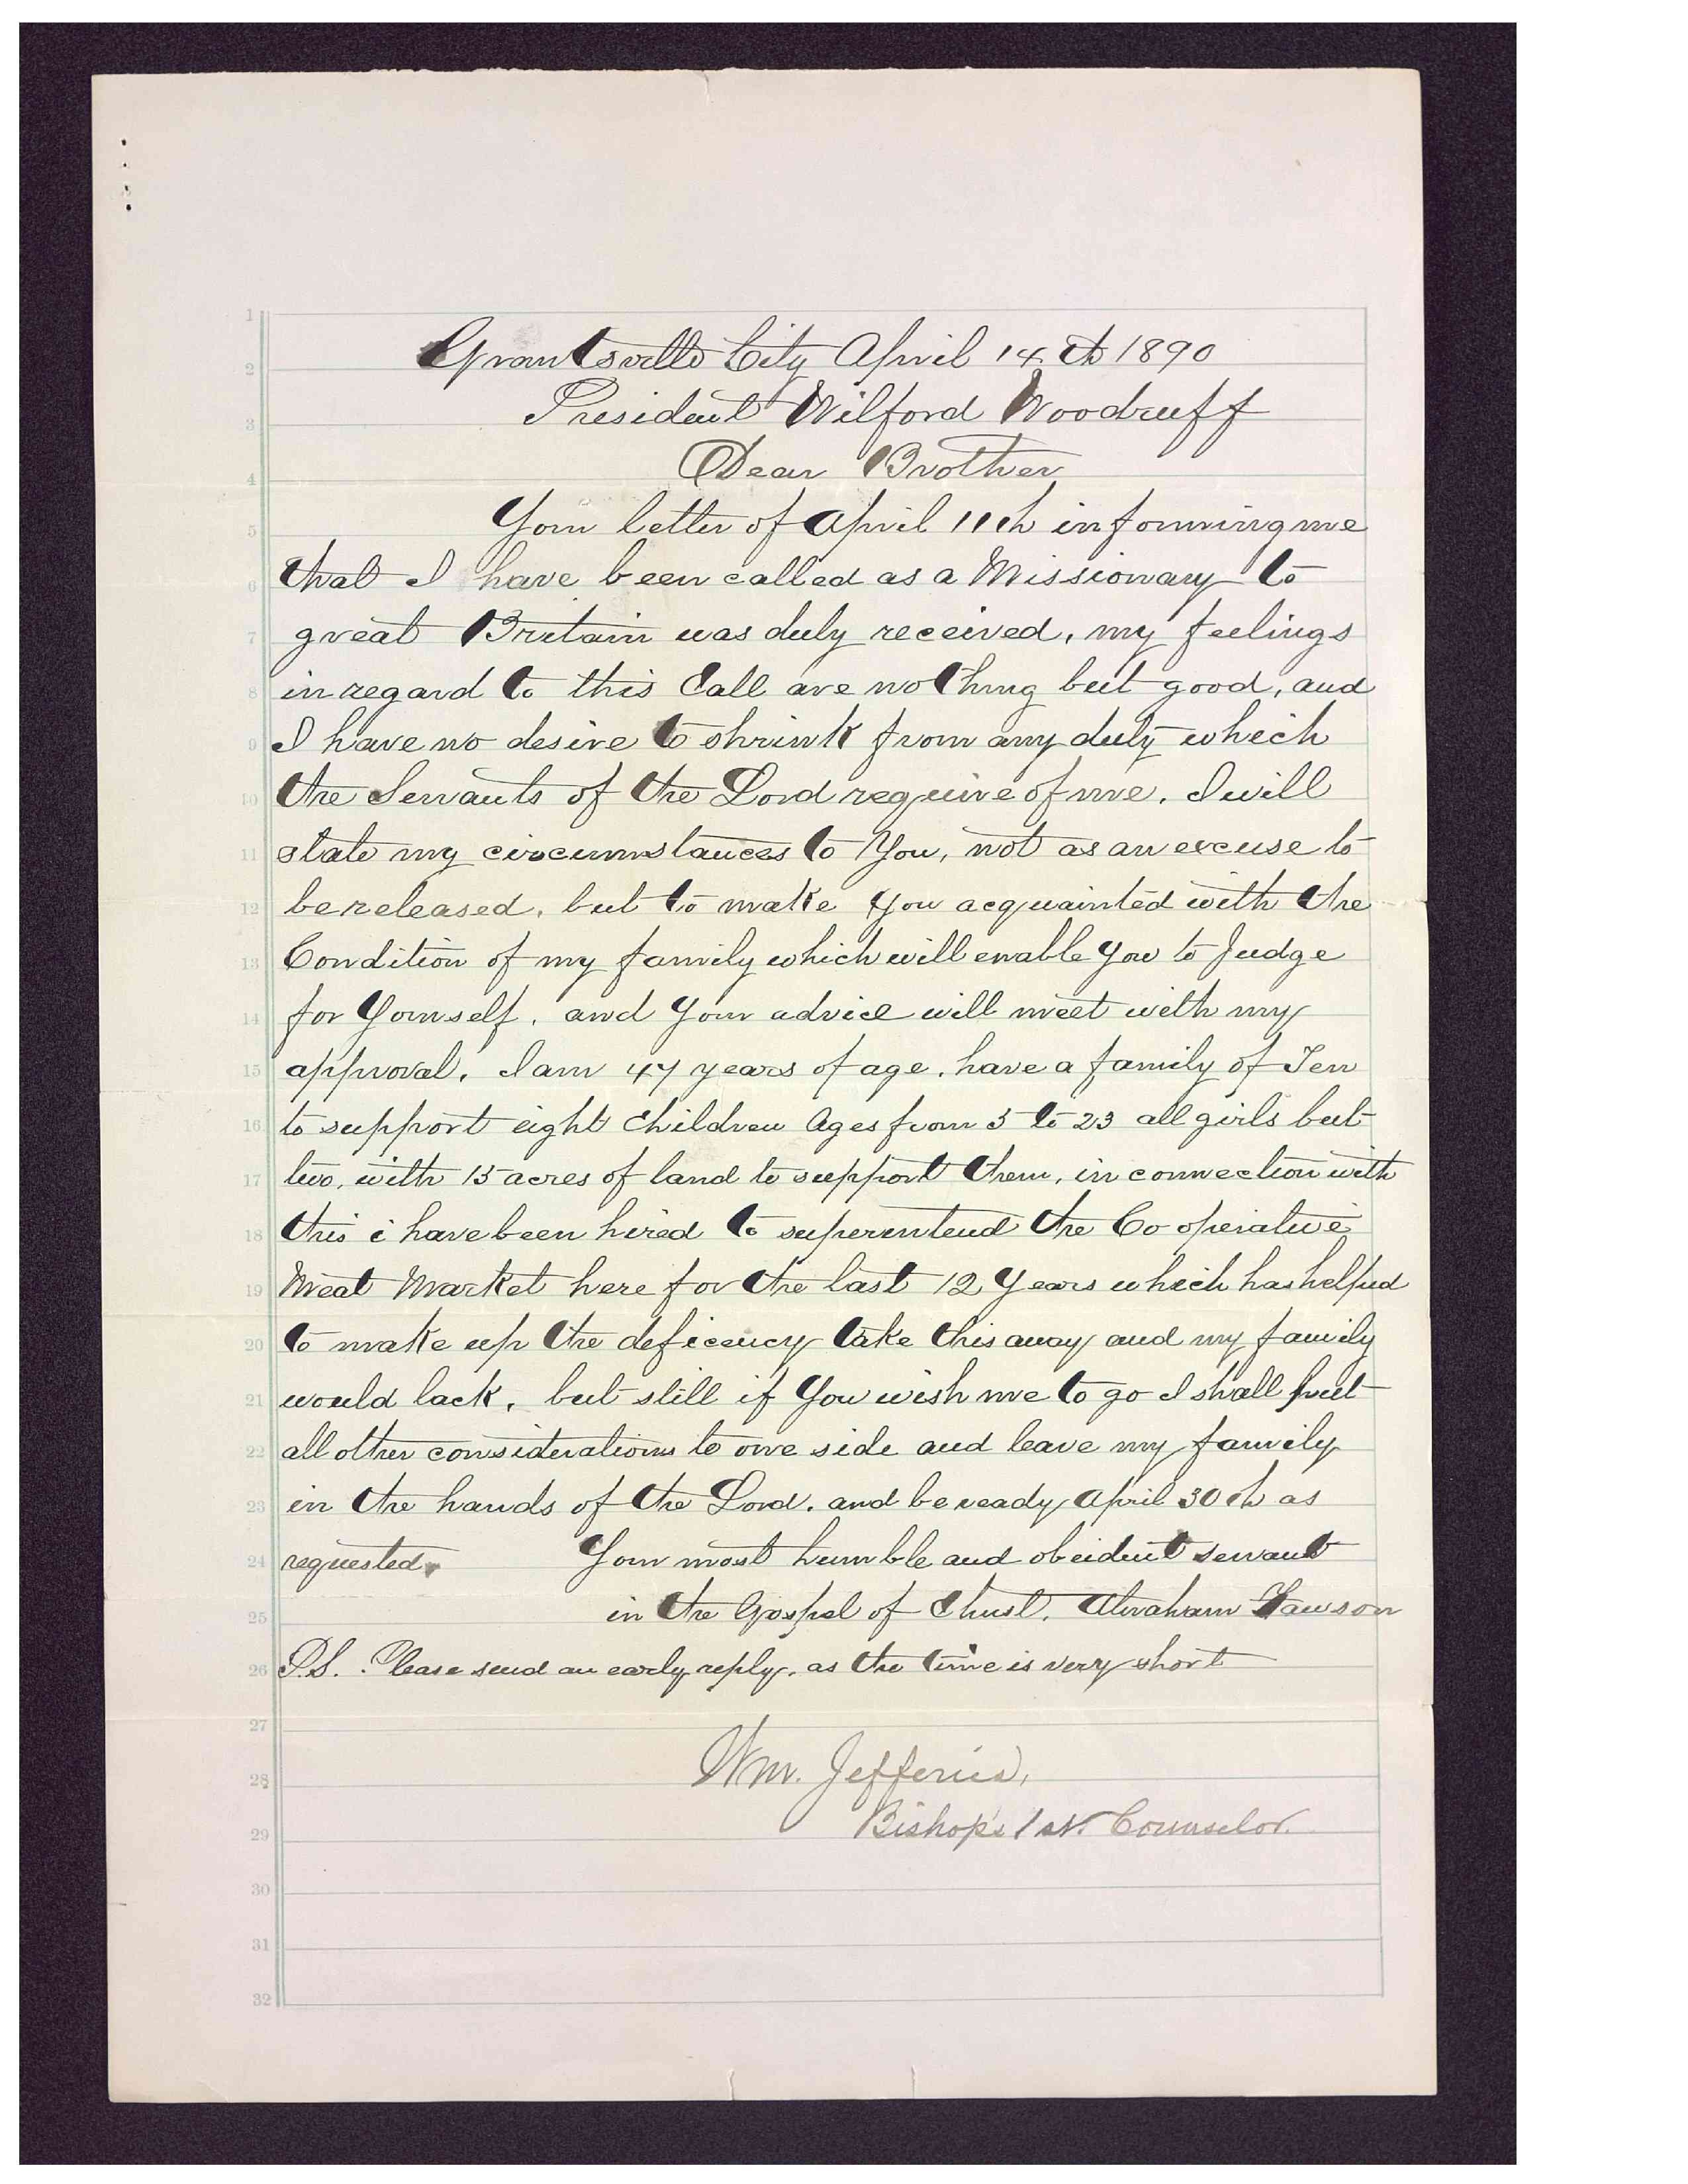 Grantsville City April 14th 1890
President Wilford Woodruff
Dear Brother
Your letter of April 11th informing me
that I have been called as a Missionary to
great Britain was duly received, my feelings
in regard to this Call are nothing but good, and
I have no desire to shrink from any duty which
the Servants of the Lord require of me. I will
state my circumstances to You, not as an excuse to
be released, but to make You acquainted with the
Condition of my family which will enable You to Judge
for Yourself, and Your advice will meet with my
approval. I am 47 years of age, have a family of Ten
to support eight Children Ages from 5 to 23 all girls but
two, with 15 acres of land to support them, in connection with
this i have been hired to superintend the Co operative
Meat Market here for the last 12 Years which has helped
to make up the deficency take this away and my family
would lack, but still if You wish me to go I shall put
all other considerations to one side and leave my family
in the hands of the Lord. and be ready April 30th as
requested. Your most humble and obeident servant
in the Gospel of Christ. Abraham Fawson
P.S. Please send an early reply, as the time is very short
Wm. Jefferies,
Bishop's 1st. Counselor.
1
2
3
4
5
6
7
8
9
10
11
12
13
14
15
16
17
18
19
20
21
22
23
24
25
26
27
28
29
30
31
32